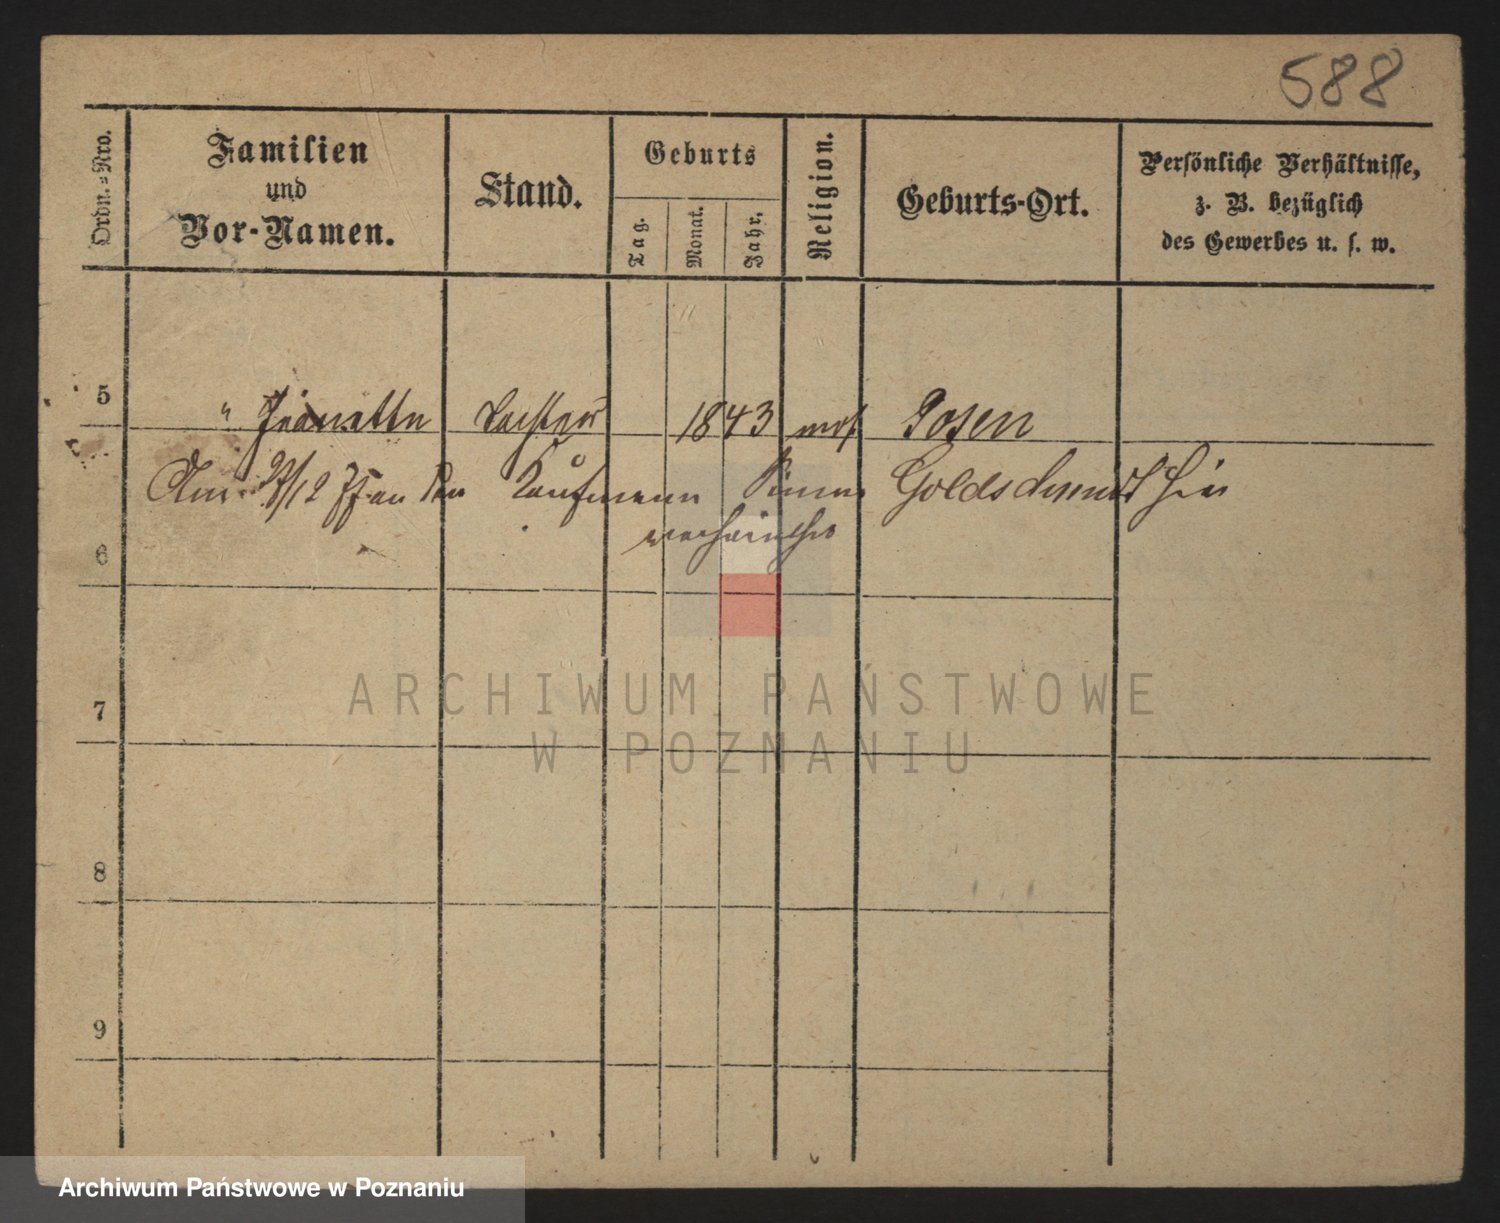 588
Ordn.-Nro.
Familien
und
Vor-Namen.
Stand.
Geburts
Tag.
Monat.
Jahr.
Religion.
Geburts-Ort.
Persönliche Verhältnisse,
z. B. bezüglich
des Gewerbes u. s. w.
5
" Jeanette Tochter 1843 mos. Posen
Am /12 an den Kaufmann Goldschmidt hier
verheirathet
6
7
8
9
ARCHIWUM PAŃSTWOWE
W POZNANIU
Archiwum Państwowe w Poznaniu